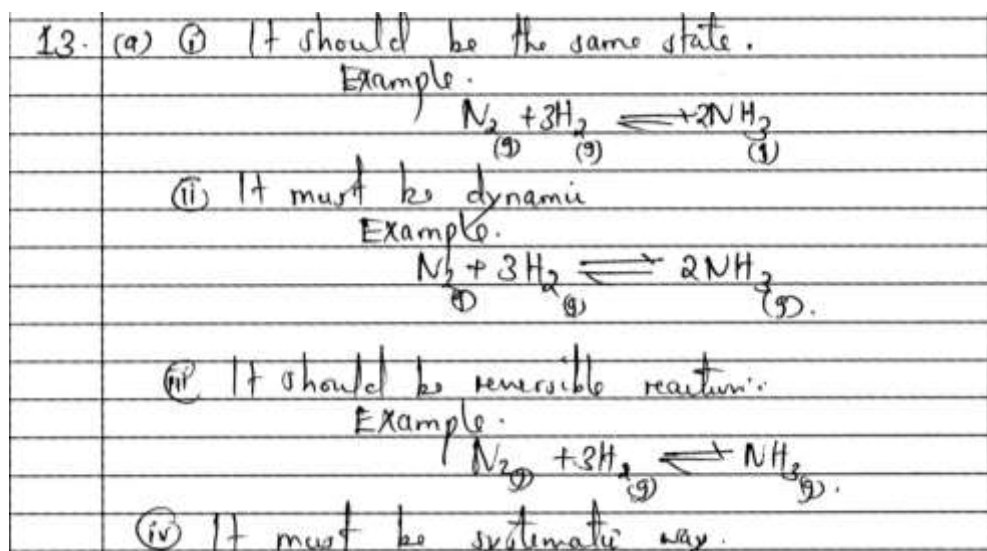 13. (a) (i) It should be the same state.
Example.
N₂(g) + 3H₂(g) ⇌ 2NH₃(g)
(ii) It must be dynamic
Example.
N₂(g) + 3H₂(g) ⇌ 2NH₃(g).
(iii) It should be reversible reaction.
Example.
N₂(g) + 3H₂(g) ⇌ NH₃(g).
(iv) It must be systematic way.